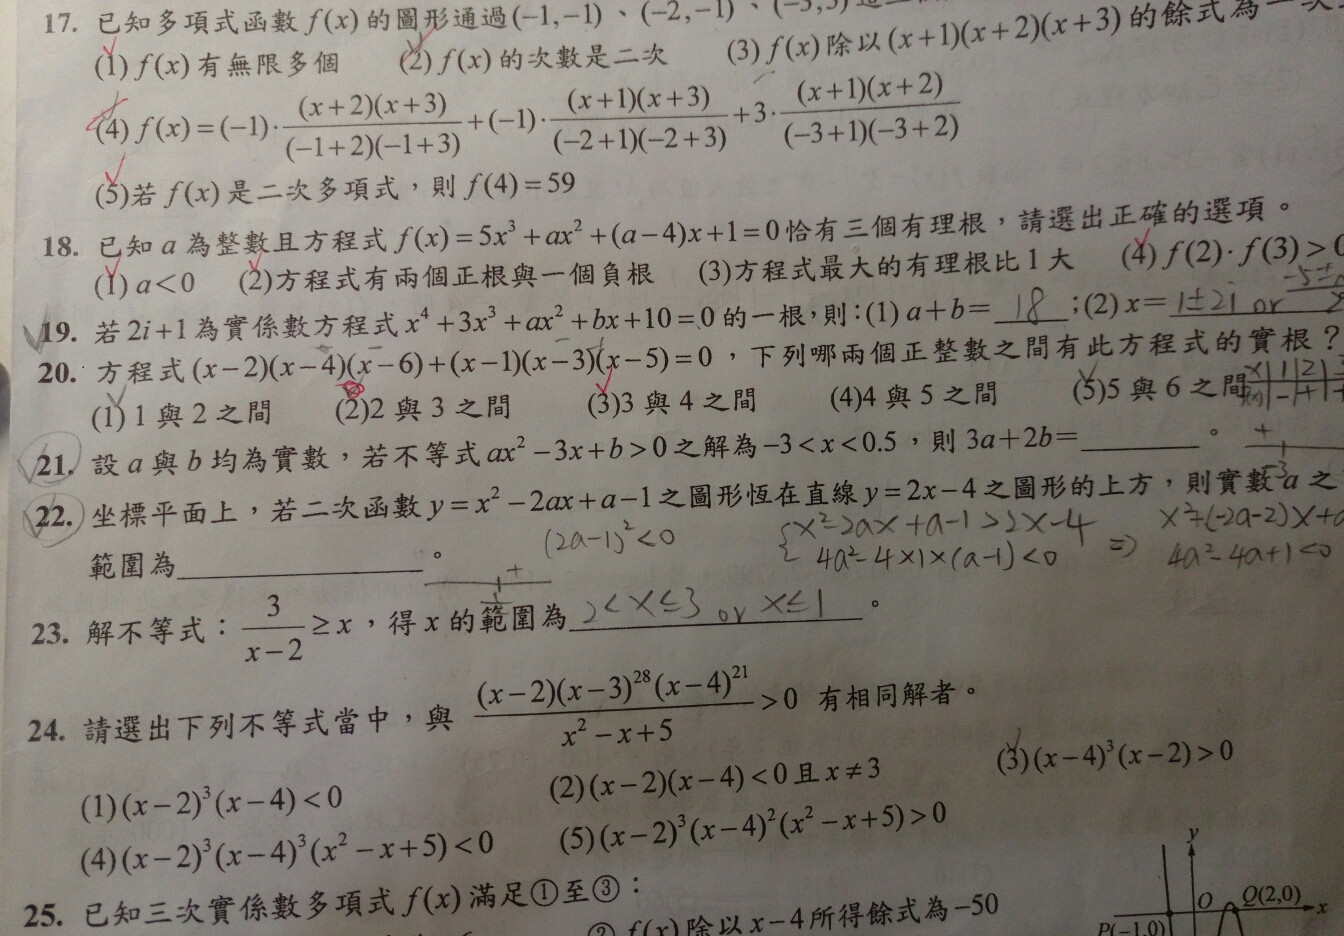 17. 已知多項式函數 f(x) 的圖形通過(−1,−1)、(−2,−1)、(−3,3)
(1) f(x) 有無限多個 (2) f(x) 的次數是二次 (3) f(x) 除以 (x+1)(x+2)(x+3) 的餘式為一次
(4) f(x) = (−1)· (x+2)(x+3)/(−1+2)(−1+3) + (−1)· (x+1)(x+3)/(−2+1)(−2+3) + 3· (x+1)(x+2)/(−3+1)(−3+2)
(5)若 f(x) 是二次多項式，則 f(4) = 59
18. 已知 a 為整數且方程式 f(x) = 5x³ + ax² + (a−4)x + 1 = 0 恰有三個有理根，請選出正確的選項。
(1) a < 0 (2)方程式有兩個正根與一個負根 (3)方程式最大的有理根比 1 大 (4) f(2)· f(3) > 0
19. 若 2i+1 為實係數方程式 x⁴ + 3x³ + ax² + bx + 10 = 0 的一根，則：(1) a + b = 18 ；(2) x = 1±2i or −5±
20. 方程式 (x−2)(x−4)(x−6) + (x−1)(x−3)(x−5) = 0 ，下列哪兩個正整數之間有此方程式的實根？
(1) 1 與 2 之間 (2)2 與 3 之間 (3)3 與 4 之間 (4)4 與 5 之間 (5)5 與 6 之間
21. 設 a 與 b 均為實數，若不等式 ax² − 3x + b > 0 之解為 −3 < x < 0.5 ，則 3a + 2b = ______ 。
22. 坐標平面上，若二次函數 y = x² − 2ax + a − 1 之圖形恆在直線 y = 2x − 4 之圖形的上方，則實數 a 之
範圍為______ 。 (2a−1)² < 0 { x²−2ax+a−1 > 2x−4 ⇒ x²+(−2a−2)x+a
4a²−4×1×(a−1) < 0 4a²−4a+1 < 0
23. 解不等式： 3/(x−2) ≥ x ，得 x 的範圍為 2 < x ≤ 3 or x ≤ 1 。
24. 請選出下列不等式當中，與 (x−2)(x−3)²⁸(x−4)²¹/(x²−x+5) > 0 有相同解者。
(1) (x−2)³(x−4) < 0 (2) (x−2)(x−4) < 0 且 x ≠ 3 (3) (x−4)³(x−2) > 0
(4) (x−2)³(x−4)³(x²−x+5) < 0 (5) (x−2)³(x−4)²(x²−x+5) > 0
25. 已知三次實係數多項式 f(x) 滿足①至③：
② f(x) 除以 x−4 所得餘式為 −50
y
O Q(2,0) x
P(−1,0)